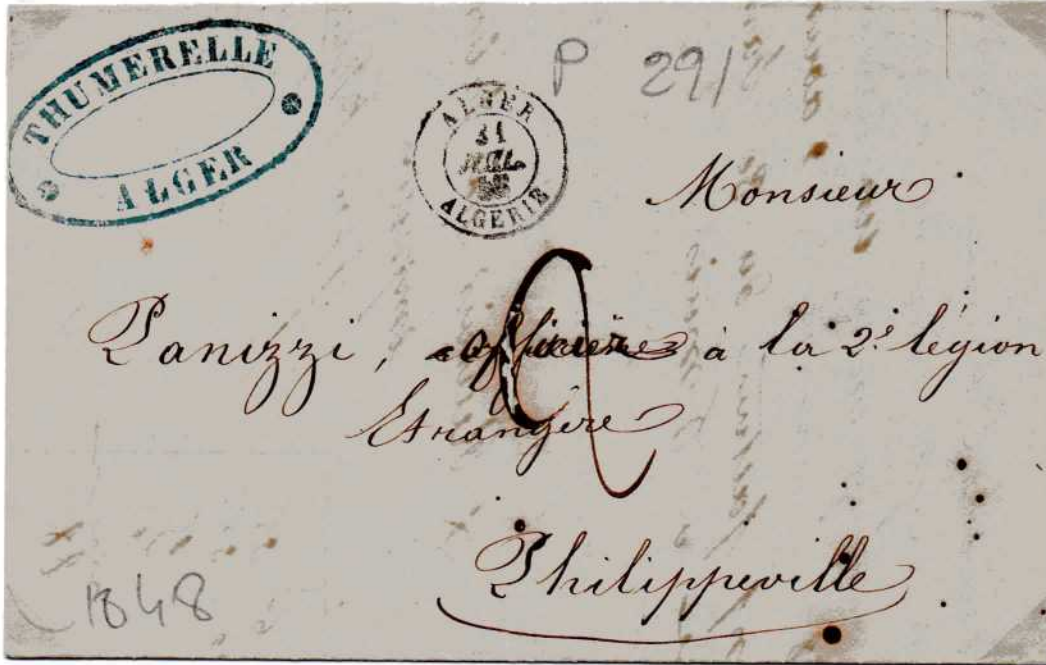 THUMERELLE
ALGER
P 291
ALGER
31
JUIL.
ALGERIE
Monsieur
Panizzi, officier à la 2e légion
Etrangère
Philippeville
1848